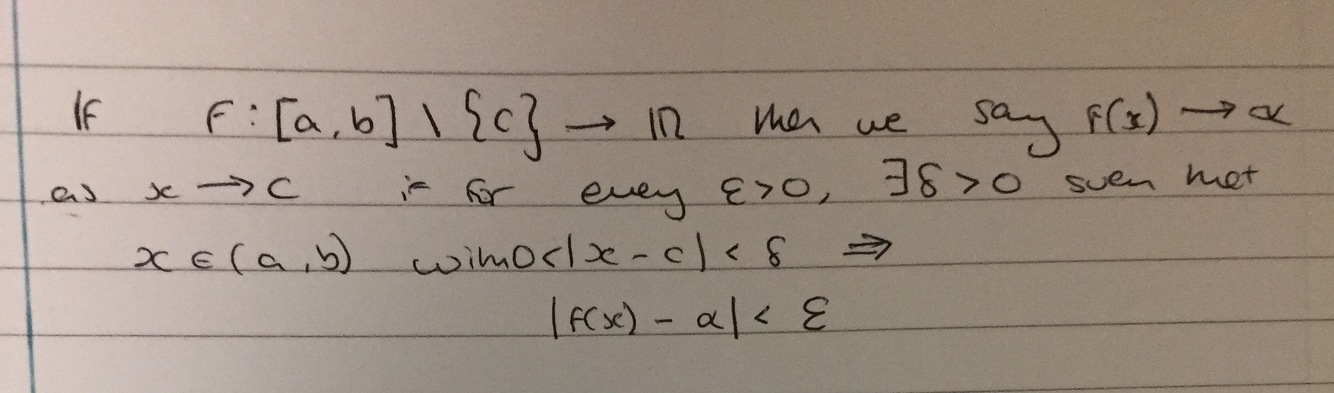 If f : [a,b] \ {c} → ℝ then we say f(x) → α
as x → c if for every ε>0, ∃δ>0 such that
x ∈ (a,b) with 0<|x-c| < δ ⇒
|f(x) - α| < ε